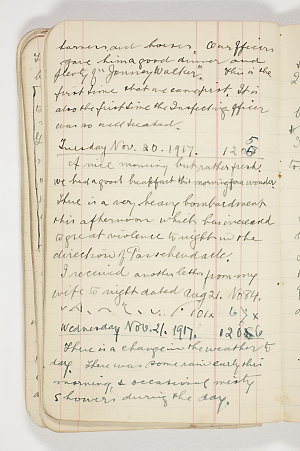 harness and horses. Our Officers
gave him a good dinner and
plenty of "Jonney Walker". This is the
first time that we came first. It is
also the first time the Inspecting Officer
was so well treated.
Tuesday Nov. 20. 1917. 1205
A nice morning but rather fresh.
We had a good breakfast this morning for a wonder.
There is a very heavy bombardment
this afternoon which has increased
to great violence to night in the
direction of Passchendaele.
I received another letter from my
wife to night dated Aug 21. No 84.
Wednesday Nov. 21. 1917. 1206
There is a change in the weather to
day. There was some rain early this
morning & occasional misty
showers during the day.